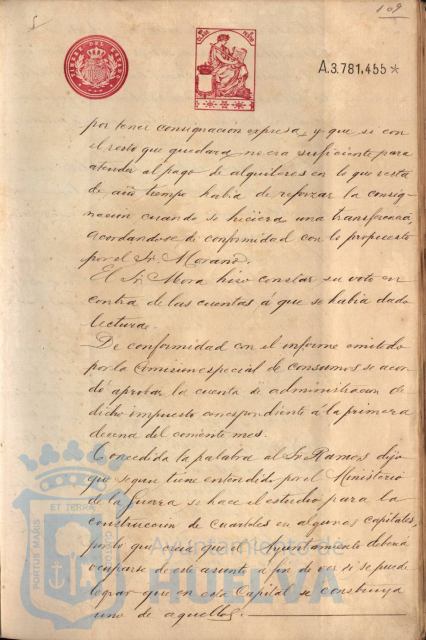 109
TIMBRE DEL ESTADO
A.3.781,455*
por tener consignación expresa, y que si con
el resto que quedara no era suficiente para
atender al pago de alquileres en lo que resta
de año tiempo habia de reforzar la consig-
nacion cuando se hiciera una transferencia,
acordandose de conformidad con lo propuesto
por el Sr. Morano.
El Sr. Mora hizo constar su voto en
contra de las cuentas á que se habia dado
lectura.
De conformidad con el informe emitido
por la Comision especial de consumos se acor-
dó aprobar la cuenta de administracion de
dicho impuesto correspondiente á la primera
decena del corriente mes.
Concedida la palabra al Sr. Ramos dijo
que segun tiene entendido por el Ministerio
de la Guerra se hace el estudio para la
construccion de Cuarteles en algunas capitales,
por lo que creia que el Ayuntamiento deberá
ocuparse de este asunto á fin de ver si se puede
lograr que en esta Capital se construya
uno de aquellos.
PORTUS MARIS ET TERRAE CUSTODIA
Ayuntamiento de
HUELVA